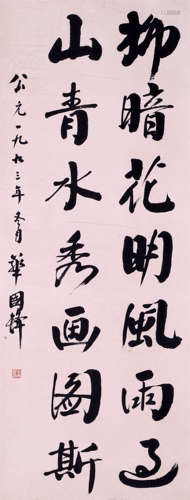 柳暗花明風雨過
山青水秀画图斯
公元一九九三年冬月 華國鋒